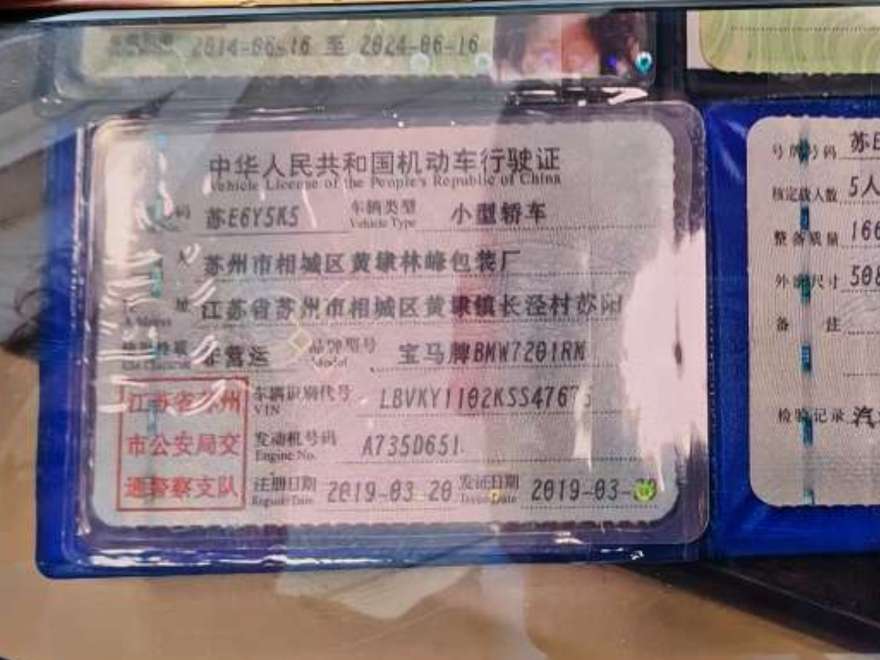 2014-06-16 至 2024-06-16
中华人民共和国机动车行驶证
Vehicle License of the People's Republic of China
码 苏E6Y5K5 车辆类型 小型轿车
Vehicle Type
人 苏州市相城区黄埭林峰包装厂
址 江苏省苏州市相城区黄埭镇长泾村苏阳
非营运 品牌型号 宝马牌BMW7201RM
Model
江苏省苏州
市公安局交
通警察支队
车辆识别代号 LBVKY1102KSS4767
VIN
发动机号码 A735D651
Engine No.
注册日期 2019-03-20 发证日期 2019-03-20
Register Date Issue Date
号牌号码 苏E
核定载人数 5人
整备质量 166
外廓尺寸 508
备 注
检验记录